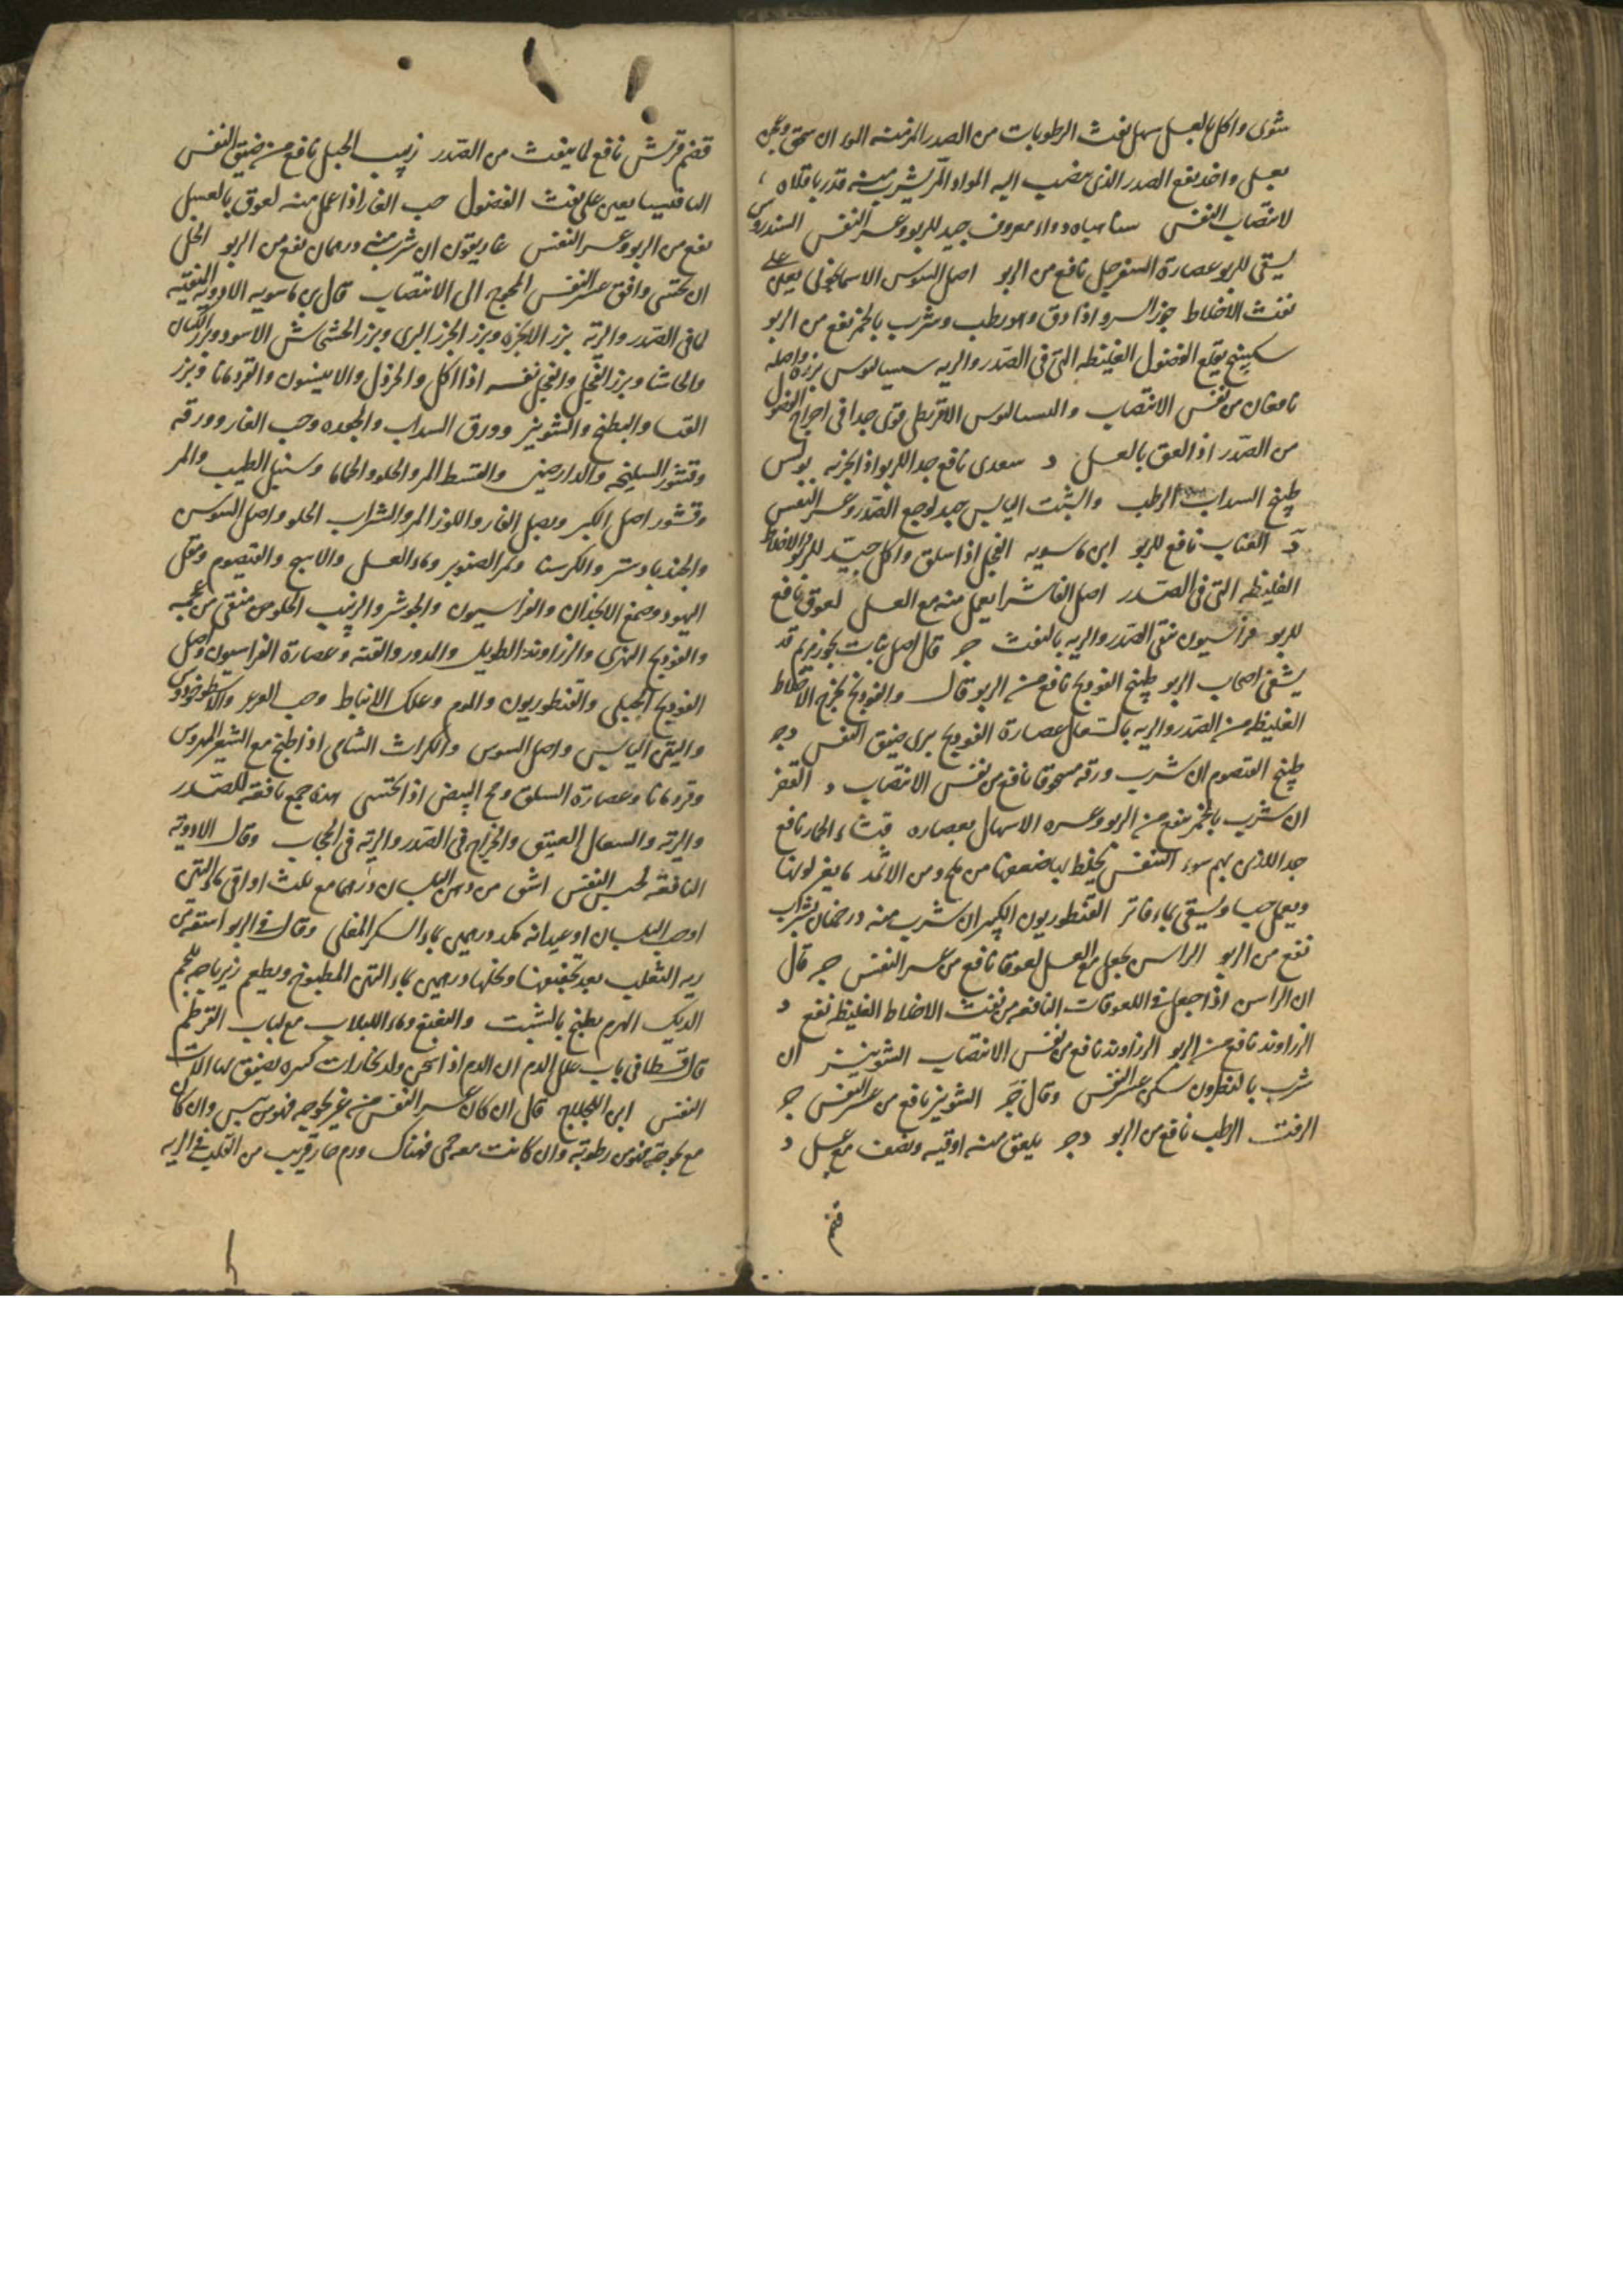 شوى واكل بالعسل سهل نفث الرطوبات من الصدر المزمنه ان سحق وعجن
بعسل واخذ نفع الصدر الذى ينصب اليه المواد يشرب منه قدر باقلاه
لانتصاب النفس دواء معروف جيد للربو وعسر النفس السندروس
يسقى للربو عصارة السفرجل نافع من الربو اصل السوس الاسمانجونى يعين على
نفث الاخلاط جوز السرو اذا دق وهو رطب وشرب بالخمر نفع من الربو
سكبينج يقلع الفضول الغليظه التى فى الصدر والريه سيساليوس بزره واصله
نافعان من نفس الانتصاب والسساليوس الاقريطى قوى جدا فى اخراج الفضول
من الصدر اذا لعق بالعسل د سعدى نافع جدا للربو بولس
طبيخ السداب الرطب والشبث اليابس جيد لوجع الصدر وعسر النفس
د العناب نافع للربو ابن ماسويه الفجل اذا سلق واكل جيد للربو والاخلاط
الغليظه التى فى الصدر اصل الفاشرا يعمل منه مع العسل لعوق نافع
للربو فراسيون ينقى الصدر والريه بالنفث ج قال اصل نبات بخور مريم قد
يشفى اصحاب الربو طبيخ الفودنج نافع من الربو قال والفودنج يخرج الاخلاط
الغليظه من الصدر والريه باستعمال عصارة الفودنج يبرى ضيق النفس دج
طبيخ القيصوم ان شرب ورقه مسحوقا نافع من نفس الانتصاب د القفر
ان شرب بالخمر ينفع من الربو وعسره الاسهال بعصاره قثاء الحمار نافع
جدا للذين بهم سوء التنفس يخلط بها ضعفها من ملح ومن الاثمد ما يغير لونها
ويعمل حبا ويسقى بماء فاتر القنطوريون الكبير ان شرب منه درخمان بشراب
نفع من الربو الراسن يجعل مع العسل لعوقا نافع من عسر النفس ج قال
ان الراسن اذا جعل فى اللعوقات النافعه من نفث الاخلاط الغليظه نفع د
الزراوند نافع من الربو الزراوند نافع من نفس الانتصاب الشونيز ان
شرب بالنطرون سكن عسر النفس وقال ج الشونيز نافع من عسر النفس ج
الزفت الرطب نافع من الربو دج يلعق منه اوقيه ونصف مع عسل د
قضم
قضم قريش نافع لما ينفث من الصدر زبيب الجبل نافع من ضيق النفس
يعين على نفث الفضول حب الغار اذا عمل منه لعوق بالعسل
نفع من الربو وعسر النفس غاريقون ان شرب منه درهمان نفع من الربو الخل
ان تحسى وافق عسر النفس المحوج الى الانتصاب قال بن ماسويه الادويه المنقيه
لما فى الصدر والريه بزر الانجره وبزر الجزر البرى وبزر الخشخاش الاسود وبزر الكتان
والحاشا وبزر الفجل والفجل نفسه اذا اكل والخردل والانيسون والقردمانا وبزر
القثا والبطيخ والشونيز وورق السداب والجعده وحب الغار وورقه
وقشور السليخه والدارصينى والقسط المر والحلو والحماما وسنبل الطيب والمر
وقشور اصل الكبر وبصل الفار واللوز المر والشراب الحلو واصل السوس
والجندبادستر والكرسنا وثمر الصنوبر وماء العسل والقيصوم ومقل
اليهود وصمغ الانجذان والفراسيون والجوشر والزبيب الحلو من منقى من عجمه
والفودنج النهرى والزراوند الطويل والمدور والقنه وعصارة الفراسيون واصل
الفودنج الجبلى والقنطوريون وعلك الانباط وحب العرعر والاسطوخودوس
والتين اليابس واصل السوس والكراث الشامى اذا طبخ مع الشعير المهروس
وقردمانا وعصارة السلق ومح البيض اذا تحسى هذه جمع نافعه للصدر
والريه والسعال العتيق والخراج فى الصدر والريه فى الحجاب وقال الادويه
النافعه لحبس النفس اشق من دهن البلسان درهما مع ثلث اواقى ماء التين
اوحب البلسان او عيدانه درهمين بماء السكر المغلى وقال فى الربو اسقه من
ريه الثعلب بعد تجفيفها ونخلها درهمين بماء التين المطبوخ ويطعم زيرباجه بلحم
الديك الهرم يطبخ بالشبت وماء اللبلاب مع لباب القرطم
قال قسطا فى باب علل الدم ان الدم اذا سخن ولد بخارات يضيق لها الات
النفس ابن اللجلاج قال ان كان عسر النفس من غير بحوحه فهو من يبس وان كان
مع بحوحه فهو من رطوبة وان كانت معه حمى فهناك ورم حار قريب من القلب فى الريه